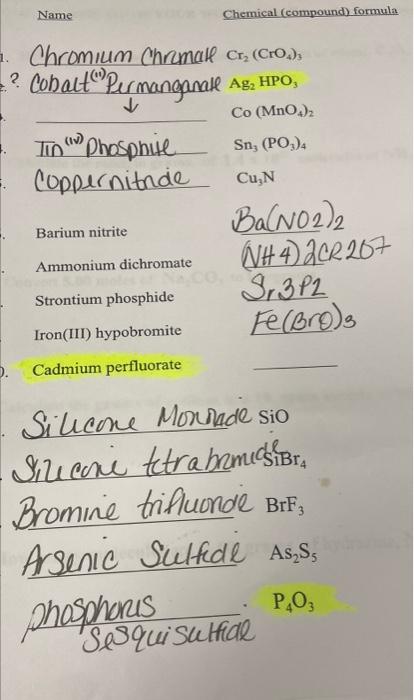 Name Chemical (compound) formula
1. Chromium Chromate Cr₂ (CrO₄)₃
? Cobalt(II) Permanganate Ag₂ HPO₃
↓ Co (MnO₄)₂
Tin(IV) Phosphite Sn₃ (PO₃)₄
Coppernitride Cu₃N
Barium nitrite Ba(NO2)2
Ammonium dichromate (NH4)2CR2O7
Strontium phosphide Sr3P2
Iron(III) hypobromite Fe(BrO)3
Cadmium perfluorate
Silicone Monoxide SiO
Silicone tetrabromide SiBr₄
Bromine trifluoride BrF₃
Arsenic Sulfide As₂S₅
phosphorus P₄O₃
Sesquisulfide